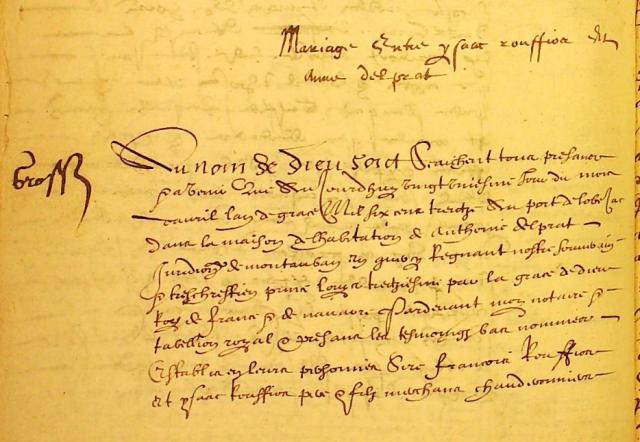 Mariage Entre ysaac rouffioa Et
anne delprat
Grossé
Au nom de dieu soict Scaichent tous presans
advenir Que au Jourdhuy vingtuniesme Jour du mois
davril lan de grace Mil six cens treitze Au port de
dans la maison dhabitation de Anthoine delprat
Juridion de montauban Regnant nostre souverain
treschrestien prince Loys tretziesme par la grace de dieu
Roy de france & de navarre Pardevant moy notaire &
tabellion royal & presans les tesmoingz bas nommes
Establis en leurs personnes Sire francois Rouffioa
Et ysaac Rouffioa pere & filz merchans chaudronniers